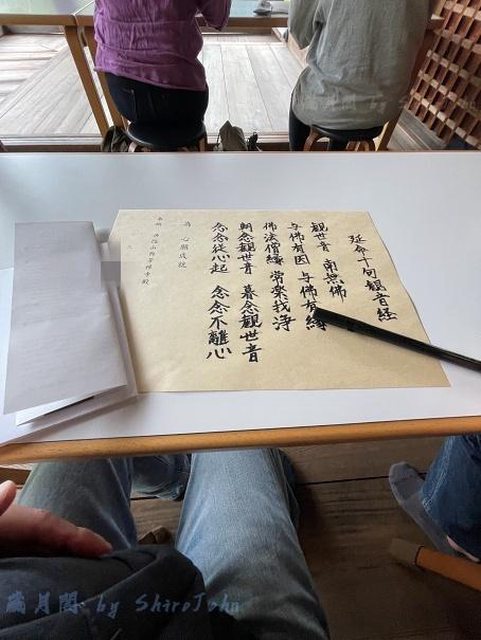 延命十句観音経
観世音 南無佛
与佛有因 与佛有縁
佛法僧縁 常楽我浄
朝念観世音 暮念観世音
念念従心起 念念不離心
為 心願成就
歲月間 by ShiroJohn